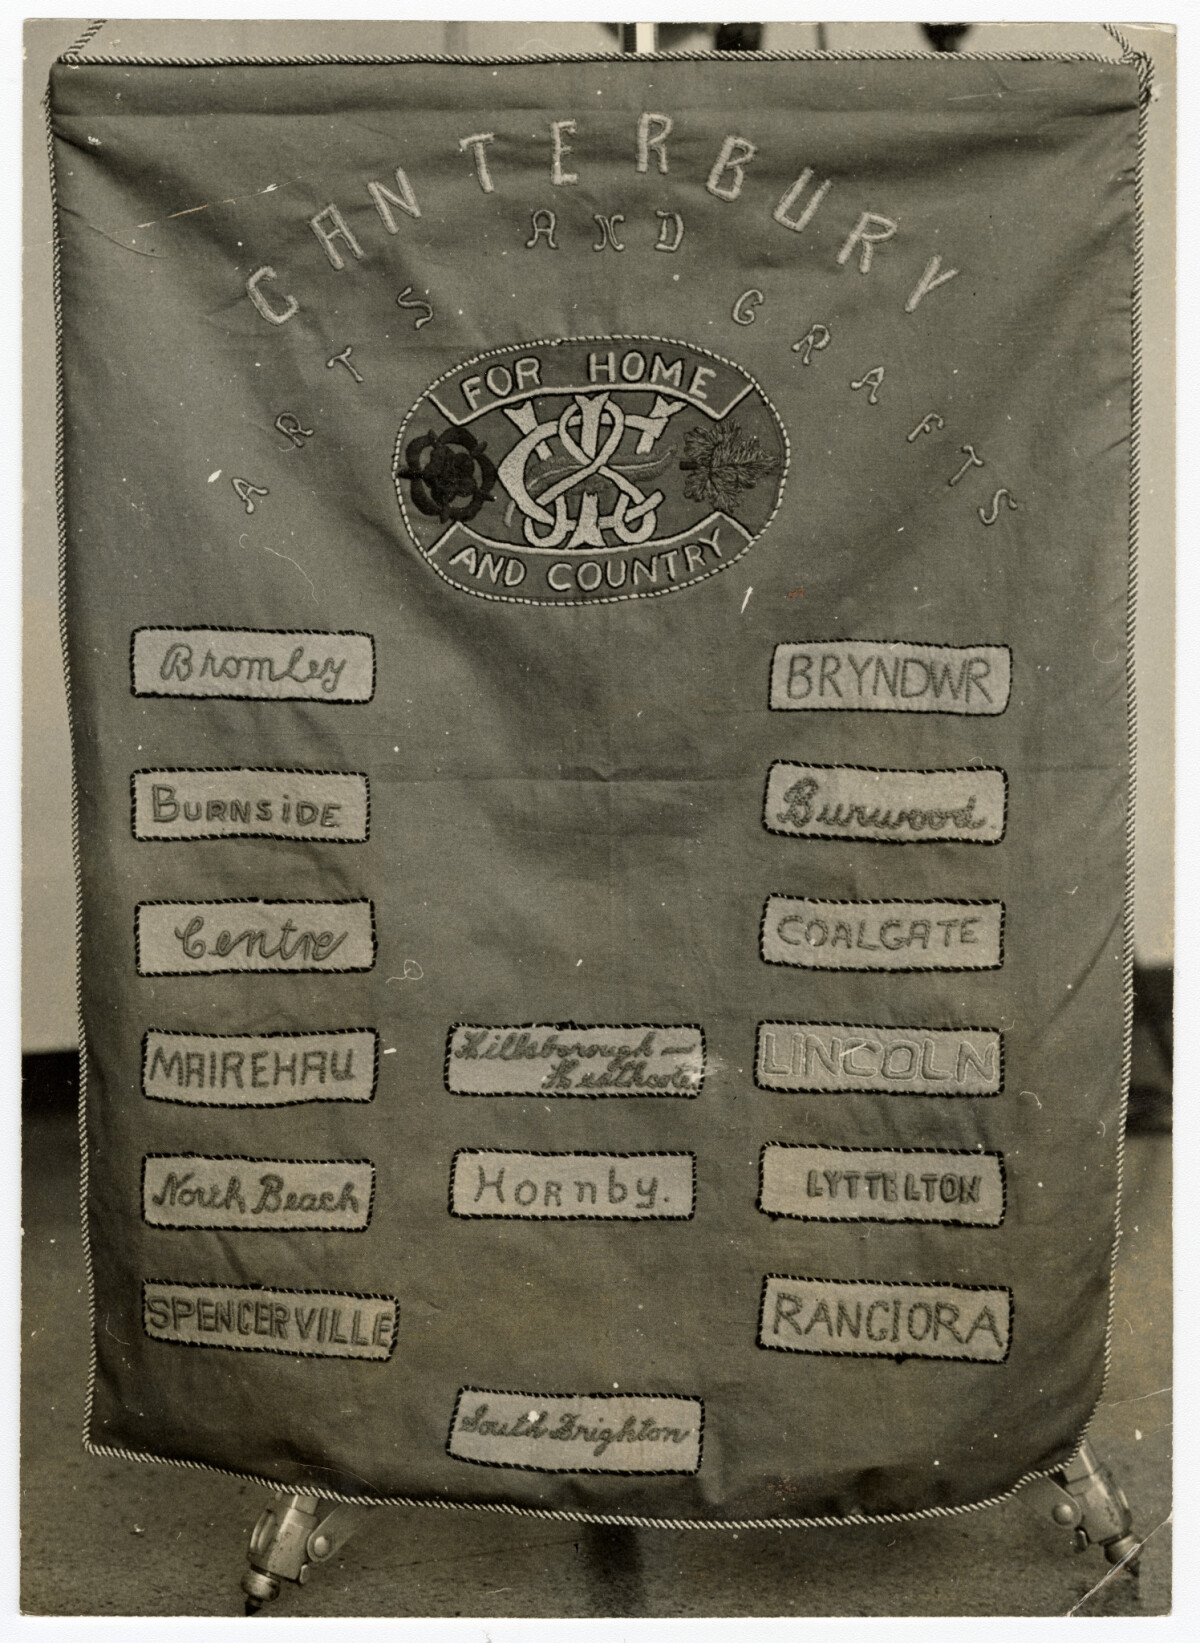 CANTERBURY
ARTS AND CRAFTS
FOR HOME
AND COUNTRY
Bromley
BRYNDWR
BURNSiDE
Burwood.
Centre
COALGATE
MAIREHAU
Hillsborough –
Heathcote.
LINCOLN
North Beach
HORnby.
LYTTELTON
SPENCERVILLE
RANGIORA
South Brighton